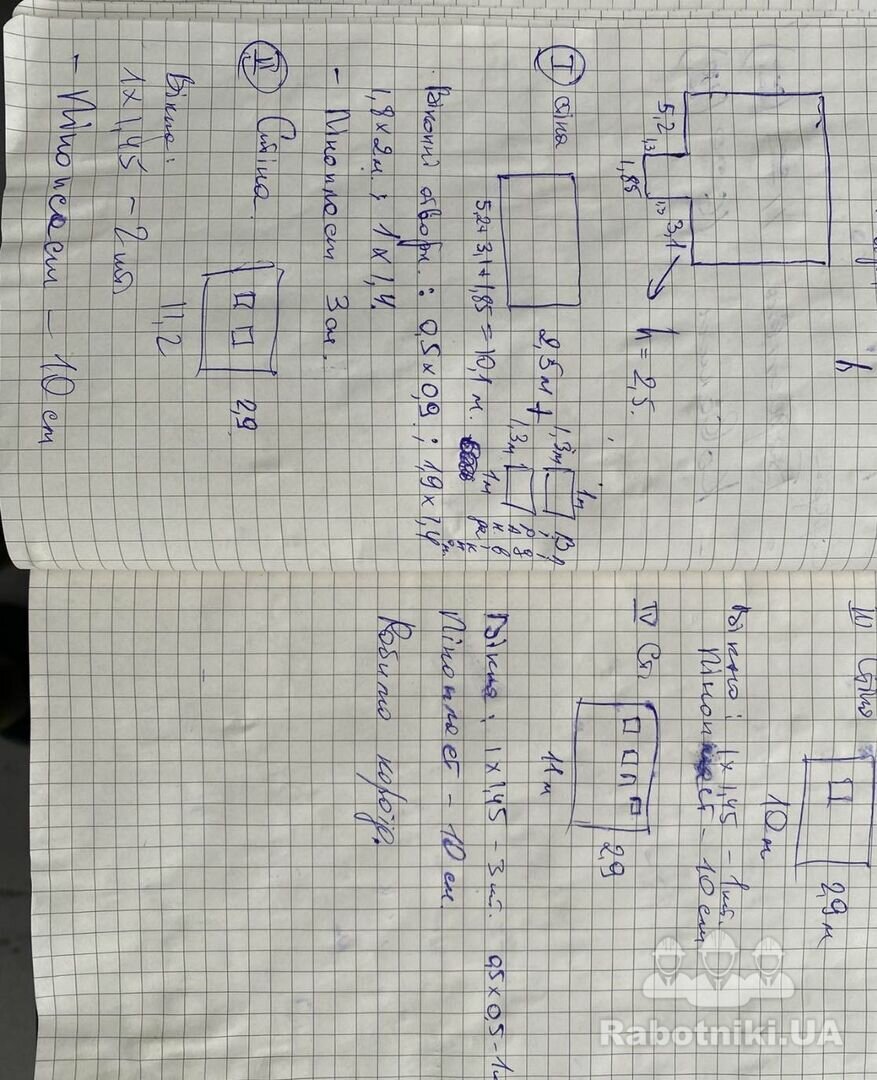 h
5,2
1,3
1,85
1,3
3,1
h = 2,5.
I
стіна
2,5м +
1,3м
1м
1,3м
1м
5,2+3,1+1,85 = 10,1 м.
Віконні отвори: 0,5 x 0,9; 1,9 x 1,4
1,8 x 2м.; 1 x 1,4.
- Пінопласт 3см.
II Стіна.
2,9
11,2
Вікна:
1 x 1,45 - 2 шт
- Пінопласт - 10 см
III Стіна
2,9 м
10 м
Вікно: 1 x 1,45 - 1 шт.
Пінопласт - 10 см
IV Ст
2,9
11 м
Вікна: 1 x 1,45 - 3 шт. 0,5 x 0,5 - 1
Пінопласт - 10 см.
Робимо короїд.
Rabotniki.UA